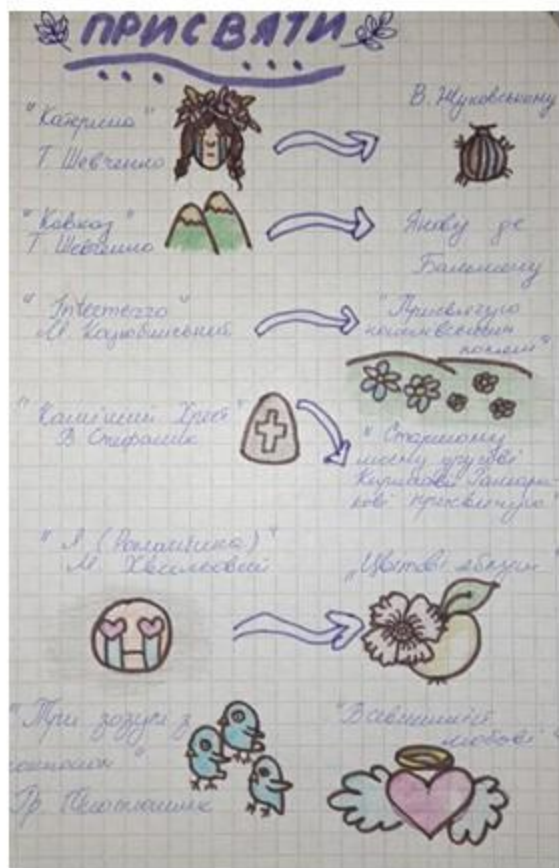 ПРИСВЯТИ
"Катерина"
Т. Шевченко
В. Жуковському
"Кавказ"
Т. Шевченко
Якову де
Бальмену
"Intermezzo"
М. Коцюбинський
"Присвячую
кононівським
полям"
"Камінний Хрест"
В. Стефаник
"Старшому
моєму другові
присвячую
"Я (Романтика)"
М. Хвильовий
"Цвітові яблуні"
"Три зозулі з
поклоном"
Гр. Тютюнник
"Всевишній
любові"